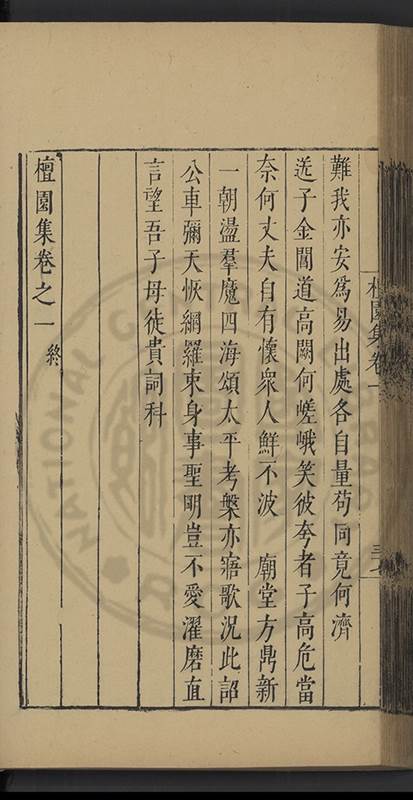 難我亦安爲易出處各自量茍同竟何濟
送子金閶道高闕何嵯峨笑彼夸者子高危當
奈何丈夫自有懷衆人鮮不波　廟堂方鼎新
一朝盪羣魔四海頌太平考槃亦寤歌況此詔
公車彌天恢綱羅束身事聖明豈不愛濯磨直
言望吾子毋徒貴詞科
檀園集卷之一 終
檀園集卷一